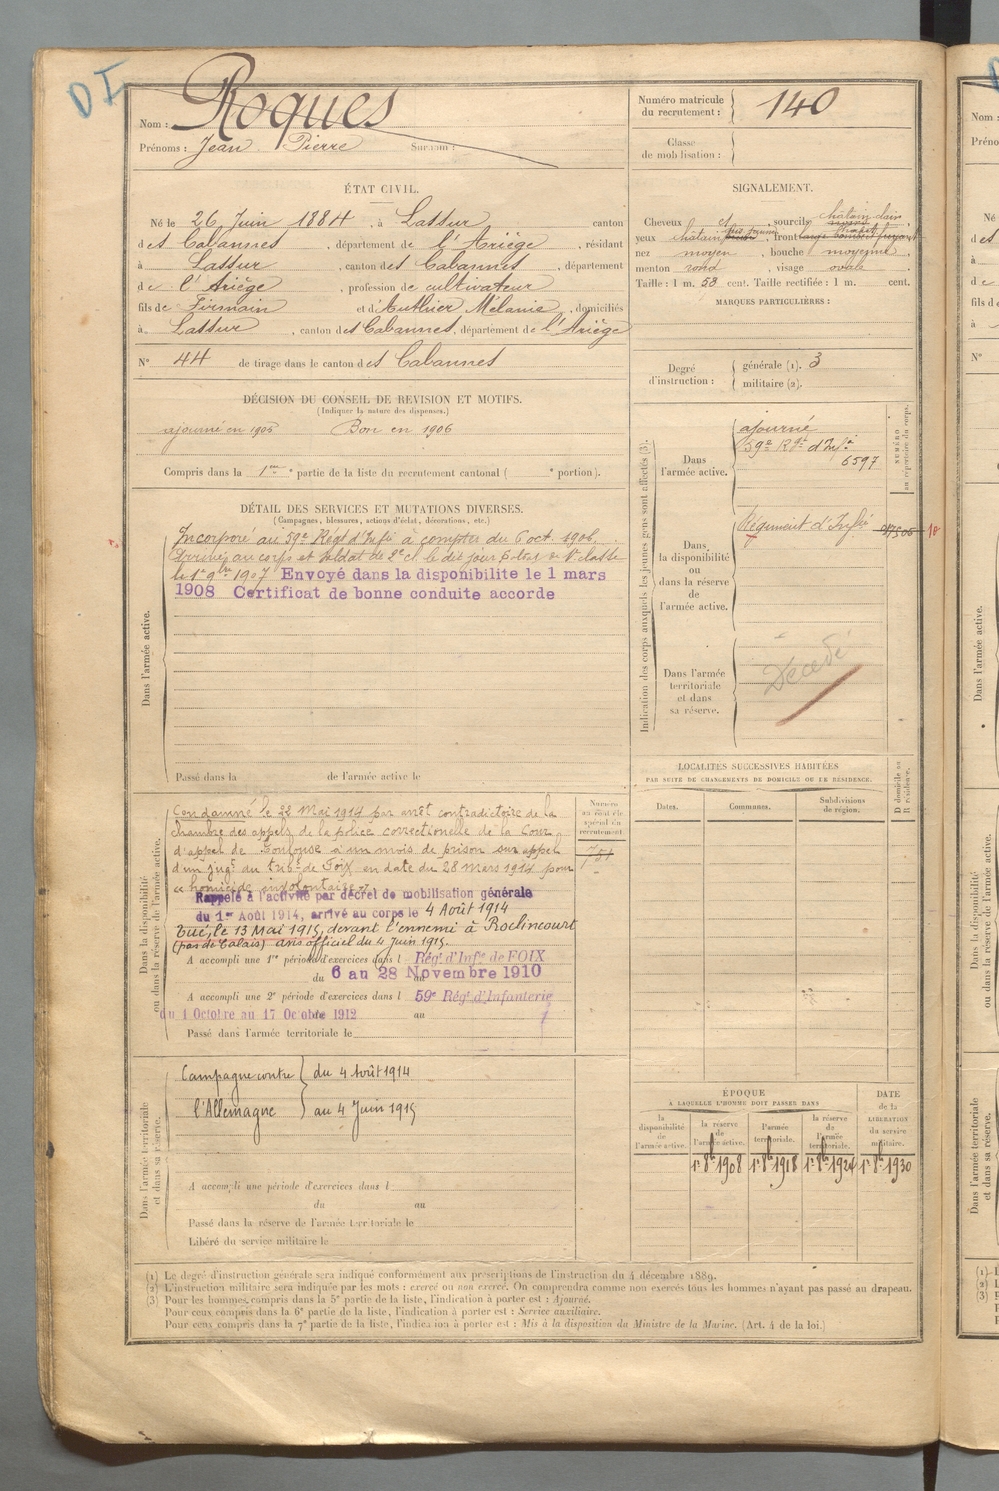 DI
Nom : Roques
Prénoms : Jean Pierre Surnom :
Numéro matricule du recrutement : 140
Classe de mobilisation :
ÉTAT CIVIL.
Né le 26 Juin 1884, à Lassur canton
des Cabannes, département de l'Ariège, résidant
à Lassur, canton des Cabannes, département
de l'Ariège, profession de cultivateur
fils de Firmain et d'Authier Mélanie, domiciliés
à Lassur, canton des Cabannes, département de l'Ariège
N° 44 de tirage dans le canton des Cabannes
SIGNALEMENT.
Cheveux et, sourcils châtain clair
yeux châtain, front
nez moyen, bouche moyenne,
menton rond, visage ovale
Taille : 1 m. 58 cent. Taille rectifiée : 1 m. cent.
MARQUES PARTICULIÈRES :
Degré d'instruction : générale (1). 3
militaire (2).
DÉCISION DU CONSEIL DE REVISION ET MOTIFS.
(Indiquer la nature des dispenses.)
ajourné en 1905 Bon en 1906
Compris dans la 1ère partie de la liste du recrutement cantonal ( portion).
Indication des corps auxquels les jeunes gens sont affectés (3).
Dans l'armée active.
ajourné
59e Régt d'Infie
6597
NUMÉRO au répertoire du corps.
Dans la disponibilité ou dans la réserve de l'armée active.
Régiment d'Infie
Dans l'armée territoriale et dans sa réserve.
Décédé
DÉTAIL DES SERVICES ET MUTATIONS DIVERSES.
(Campagnes, blessures, actions d'éclat, décorations, etc.)
Dans l'armée active.
Incorporé au 59e Régt d'Infie à compter du 6 oct. 1906.
Arrivé au corps et soldat de 2e cl. le dit jour. Soldat de 1e classe
le 1er 9bre 1907 Envoyé dans la disponibilite le 1 mars
1908 Certificat de bonne conduite accorde
Passé dans la de l'armée active le
Dans la disponibilité ou dans la réserve de l'armée active.
Condamné le 22 Mai 1914 par arrêt contradictoire de la
chambre des appels de la police correctionnelle de la Cour
d'appel de Toulouse à un mois de prison sur appel
d'un jugt du tribl de Foix en date du 28 Mars 1914 pour
"homicide involontaire".
Rappelé à l'activité par décret de mobilisation générale
du 1er Août 1914, arrivé au corps le 4 Août 1914
Tué, le 13 Mai 1915, devant l'ennemi à Roclincourt
(pas de Calais) avis officiel du 4 Juin 1915.
A accompli une 1re période d'exercices dans l Régt d'Infie de FOIX
du 6 au 28 Novembre 1910
A accompli une 2e période d'exercices dans l 59e Régt d'Infanterie
du 1 Octobre au 17 Octobre 1912 au
Passé dans l'armée territoriale le
Numéro au contrôle spécial du recrutement
LOCALITÉS SUCCESSIVES HABITÉES
PAR SUITE DE CHANGEMENTS DE DOMICILE OU DE RÉSIDENCE.
Dates. Communes. Subdivisions de région. D domicile ou R résidence.
Dans l'armée territoriale et dans sa réserve.
Campagne contre l'Allemagne
du 4 Août 1914
au 4 Juin 1915
A accompli une période d'exercices dans l
du au
Passé dans la réserve de l'armée territoriale le
Libéré du service militaire le
ÉPOQUE
A LAQUELLE L'HOMME DOIT PASSER DANS
la disponibilité de l'armée active.
la réserve de l'armée active.
l'armée territoriale.
la réserve de l'armée territoriale.
DATE de la LIBÉRATION du service militaire.
1er 8bre 1908 1er 8bre 1918 1er 8bre 1924 1er 8bre 1930
(1) Le degré d'instruction générale sera indiqué conformément aux prescriptions de l'instruction du 4 décembre 1889.
(2) L'instruction militaire sera indiquée par les mots : exercé ou non exercé. On comprendra comme non exercés tous les hommes n'ayant pas passé au drapeau.
(3) Pour les hommes compris dans la 5e partie de la liste, l'indication à porter est : Ajourné.
Pour ceux compris dans la 6e partie de la liste, l'indication à porter est : Service auxiliaire.
Pour ceux compris dans la 7e partie de la liste, l'indication à porter est : Mis à la disposition du Ministre de la Marine. (Art. 4 de la loi.)